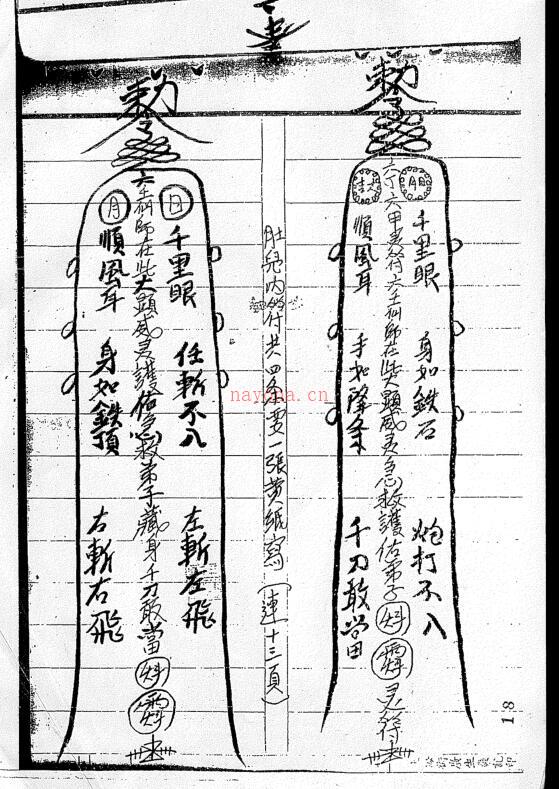 敕令
千里眼 身如鉄石 炮打不入
六丁六甲灵符六壬仙師在此大顕威灵急救護佑弟子 灵符
順風耳 手如降 千刀敢当
肚兜内符共四条要一張黄紙寫(連十三頁)
敕令
日 千里眼 任斬不入 左斬左飛
六壬仙師在此大顕威灵護佑急救弟子藏身千刀敢當
月 順風耳 身如鉄頂 右斬右飛
18
nayona.cn